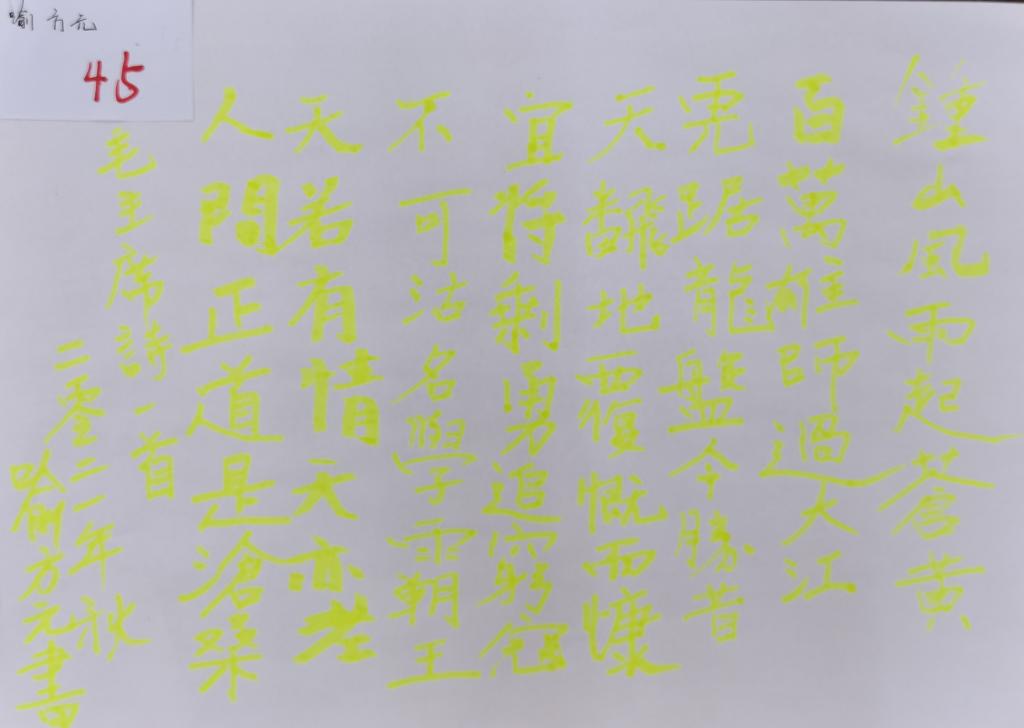 喻方元
45
鍾山風雨起蒼黄
百萬雄師過大江
虎踞龍盤今勝昔
天翻地覆慨而慷
宜將剩勇追窮寇
不可沽名學霸王
天若有情天亦老
人間正道是滄桑
毛主席詩一首
二零二一年秋
喻方元書